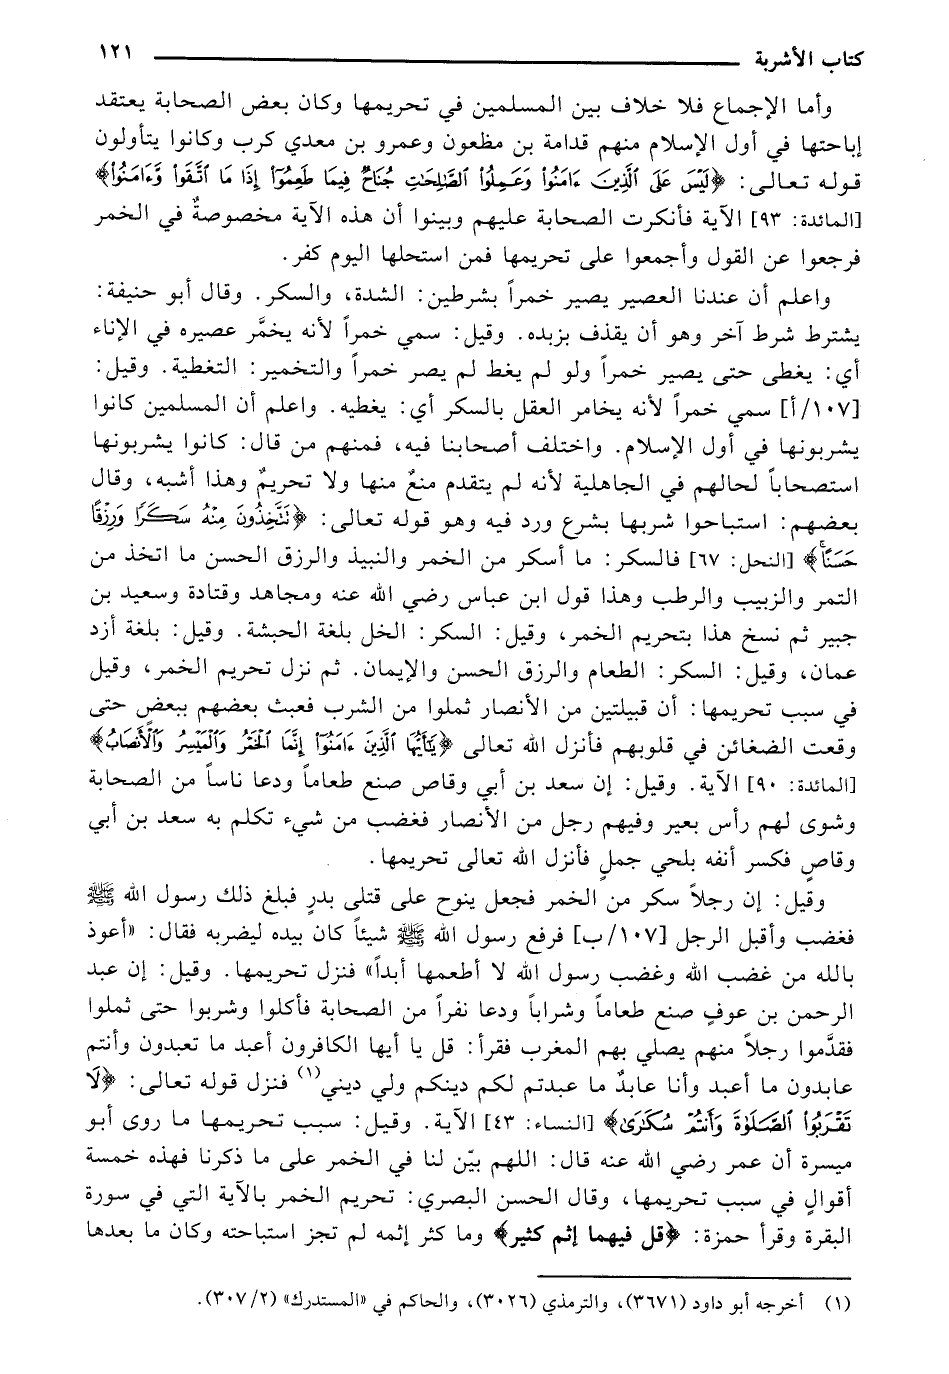 كتاب الأشربة ١٢١
وأما الإجماع فلا خلاف بين المسلمين في تحريمها وكان بعض الصحابة يعتقد
إباحتها في أول الإسلام منهم قدامة بن مظعون وعمرو بن معدي كرب وكانوا يتأولون
قوله تعالى: ﴿لَيْسَ عَلَى الَّذِينَ ءَامَنُوا وَعَمِلُوا الصَّالِحَاتِ جُنَاحٌ فِيمَا طَعِمُوا إِذَا مَا اتَّقَوا وَّءَامَنُوا﴾
[المائدة: ٩٣] الآية فأنكرت الصحابة عليهم وبينوا أن هذه الآية مخصوصةٌ في الخمر
فرجعوا عن القول وأجمعوا على تحريمها فمن استحلها اليوم كفر.
واعلم أن عندنا العصير يصير خمراً بشرطين: الشدة، والسكر. وقال أبو حنيفة:
يشترط شرط آخر وهو أن يقذف بزبده. وقيل: سمي خمراً لأنه يخمَّر عصيره في الإناء
أي: يغطى حتى يصير خمراً ولو لم يغط لم يصر خمراً والتخمير: التغطية. وقيل:
[١٠٧/أ] سمي خمراً لأنه يخامر العقل بالسكر أي: يغطيه. واعلم أن المسلمين كانوا
يشربونها في أول الإسلام. واختلف أصحابنا فيه، فمنهم من قال: كانوا يشربونها
استصحاباً لحالهم في الجاهلية لأنه لم يتقدم منعٌ منها ولا تحريمٌ وهذا أشبه، وقال
بعضهم: استباحوا شربها بشرع ورد فيه وهو قوله تعالى: ﴿تَتَّخِذُونَ مِنْهُ سَكَرًا وَرِزْقًا
حَسَنًا﴾ [النحل: ٦٧] فالسكر: ما أسكر من الخمر والنبيذ والرزق الحسن ما اتخذ من
التمر والزبيب والرطب وهذا قول ابن عباس رضي الله عنه ومجاهد وقتادة وسعيد بن
جبير ثم نسخ هذا بتحريم الخمر، وقيل: السكر: الخل بلغة الحبشة. وقيل: بلغة أزد
عمان، وقيل: السكر: الطعام والرزق الحسن والإيمان. ثم نزل تحريم الخمر، وقيل
في سبب تحريمها: أن قبيلتين من الأنصار ثملوا من الشرب فعبث بعضهم ببعض حتى
وقعت الضغائن في قلوبهم فأنزل الله تعالى ﴿يَٰٓأَيُّهَا الَّذِينَ ءَامَنُوا إِنَّمَا الْخَمْرُ وَالْمَيْسِرُ وَالْأَنصَابُ﴾
[المائدة: ٩٠] الآية. وقيل: إن سعد بن أبي وقاص صنع طعاماً ودعا ناساً من الصحابة
وشوى لهم رأس بعير وفيهم رجل من الأنصار فغضب من شيء تكلم به سعد بن أبي
وقاصٍ فكسر أنفه بلحي جملٍ فأنزل الله تعالى تحريمها.
وقيل: إن رجلاً سكر من الخمر فجعل ينوح على قتلى بدرٍ فبلغ ذلك رسول الله ﷺ
فغضب وأقبل الرجل [١٠٧/ب] فرفع رسول الله ﷺ شيئاً كان بيده ليضربه فقال: «أعوذ
بالله من غضب الله وغضب رسول الله لا أطعمها أبداً» فنزل تحريمها. وقيل: إن عبد
الرحمن بن عوفٍ صنع طعاماً وشراباً ودعا نفراً من الصحابة فأكلوا وشربوا حتى ثملوا
فقدَّموا رجلاً منهم يصلي بهم المغرب فقرأ: قل يا أيها الكافرون أعبد ما تعبدون وأنتم
عابدون ما أعبد وأنا عابدٌ ما عبدتم لكم دينكم ولي ديني(١) فنزل قوله تعالى: ﴿لَا
تَقْرَبُوا الصَّلَوٰةَ وَأَنتُمْ سُكَارَىٰ﴾ [النساء: ٤٣] الآية. وقيل: سبب تحريمها ما روى أبو
ميسرة أن عمر رضي الله عنه قال: اللهم بيّن لنا في الخمر على ما ذكرنا فهذه خمسة
أقوالٍ في سبب تحريمها، وقال الحسن البصري: تحريم الخمر بالآية التي في سورة
البقرة وقرأ حمزة: ﴿قل فيهما إثم كثير﴾ وما كثر إثمه لم تجز استباحته وكان ما بعدها
(١) أخرجه أبو داود (٣٦٧١)، والترمذي (٣٠٢٦)، والحاكم في «المستدرك» (٣٠٧/٢).